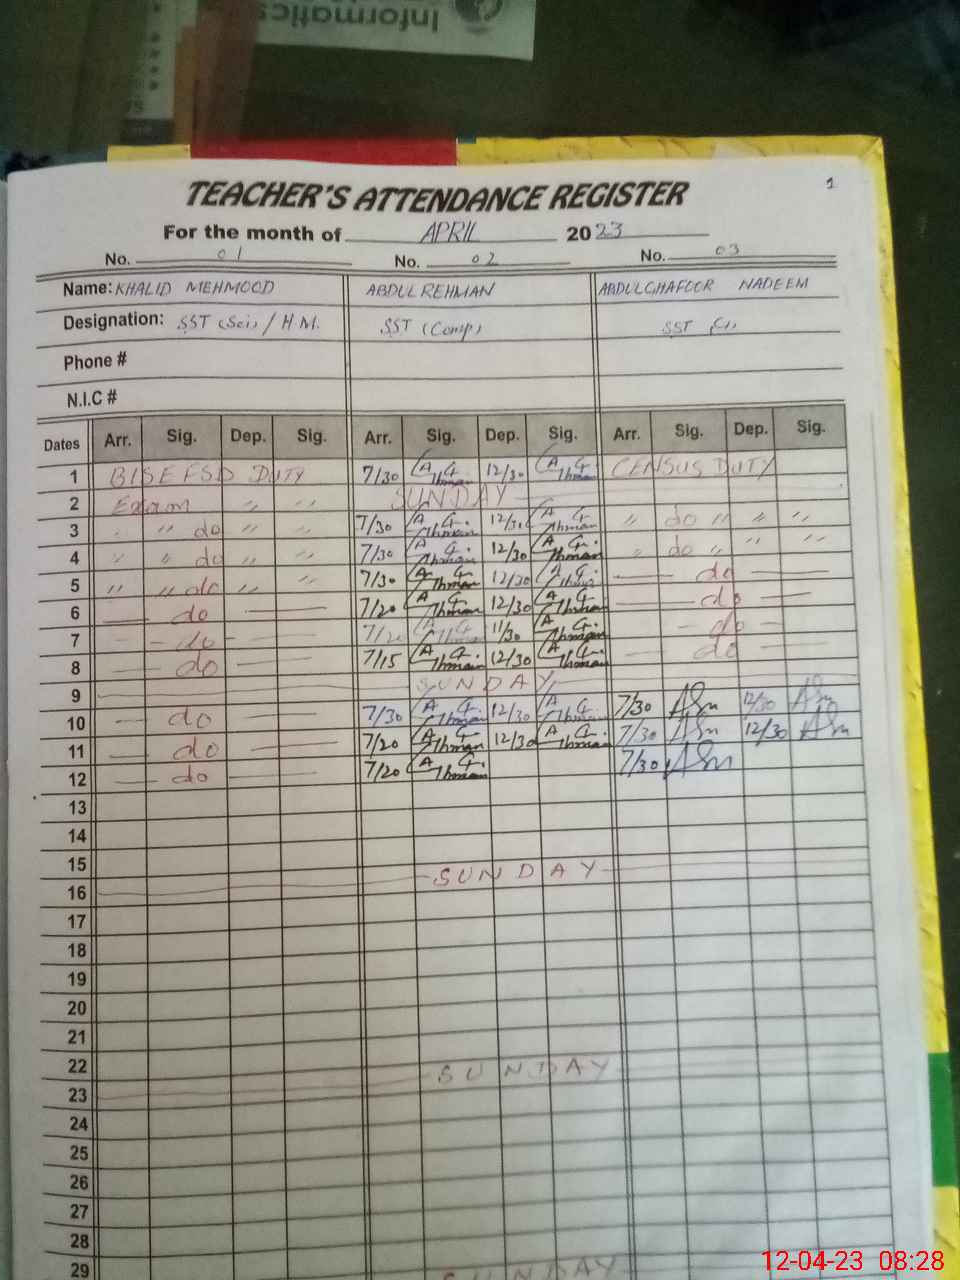 Informatics
TEACHER'S ATTENDANCE REGISTER 1
For the month of APRIL 2023
No. 01 No. 02 No. 03
Name: KHALID MEHMOOD ABDUL REHMAN ABDUL GHAFOOR NADEEM
Designation: SST (Sci) / H.M. SST (Comp) SST
Phone #
N.I.C #
Dates Arr. Sig. Dep. Sig. Arr. Sig. Dep. Sig. Arr. Sig. Dep. Sig.
1 BISE FSD DUTY 7/30 12/30 CENSUS DUTY
2 Exam " " SUNDAY
3 " do " " 7/30 12/30 " do " " "
4 " " do " " 7/30 12/30 " do " " "
5 " " do " " 7/30 12/30 do
6 do 7/20 12/30 do
7 do 7/20 11/30 do
8 do 7/15 12/30 do
9 SUNDAY
10 do 7/30 12/30 7/30 12/30
11 do 7/20 12/30 7/30 12/30
12 do 7/20 7/30
13
14
15
16 SUNDAY
17
18
19
20
21
22
23 SUNDAY
24
25
26
27
28
29 SUNDAY
12-04-23 08:28